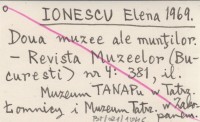 IONESCU Elena 1969.
Doua muzee ale munţilor.
– Revista Muzeelor (Bu-
cureşti) nr 4: 381, il.
Muzeum TANAPu w Tatrz.
Łomnicy i Muzeum Tatrz. w Zako-
panem.